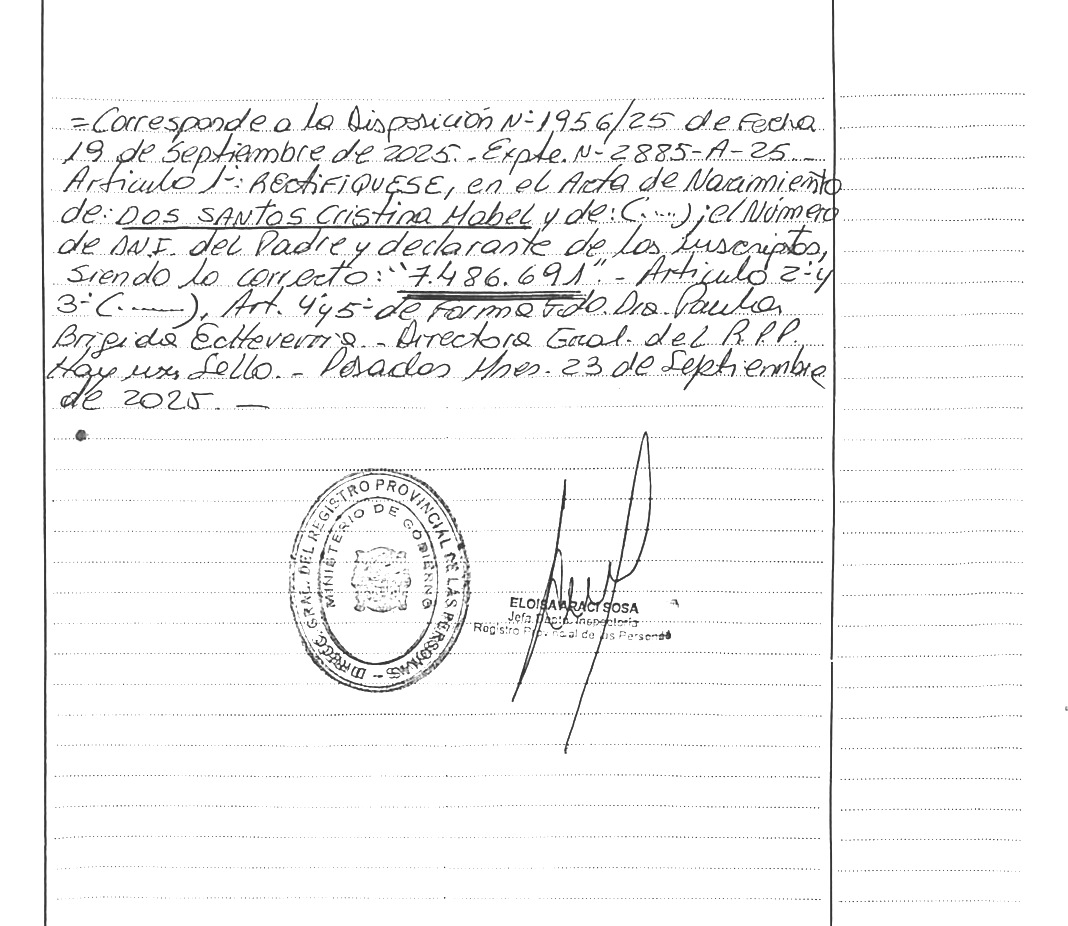 =Corresponde a la Disposición N° 1956/25 de Fecha
19 de Septiembre de 2025.- Expte. N- 2885-A-25.-
Articulo 1°: RECTIFIQUESE, en el Acta de Nacimiento
de: DOS SANTOS Cristina Mabel y de: (....); el Número
de D.N.I. del Padre y declarante de los Inscriptos,
siendo lo correcto: "7.486.691" - Articulo 2° y
3° (.......), Art. 4° y 5° de Forma Fdo. Dra. Paula
Brigida Echeverria.- Directora Gral. del R.P.P.
Hay un Sello.- Posadas Mnes. 23 de Septiembre
de 2025. —
DIRECC. GRAL. DEL REGISTRO PROVINCIAL DE LAS PERSONAS -
MINISTERIO DE GOBIERNO
ELOISA ARACI SOSA
Jefa Dpto. Inspectoria
Registro Provincial de las Personas